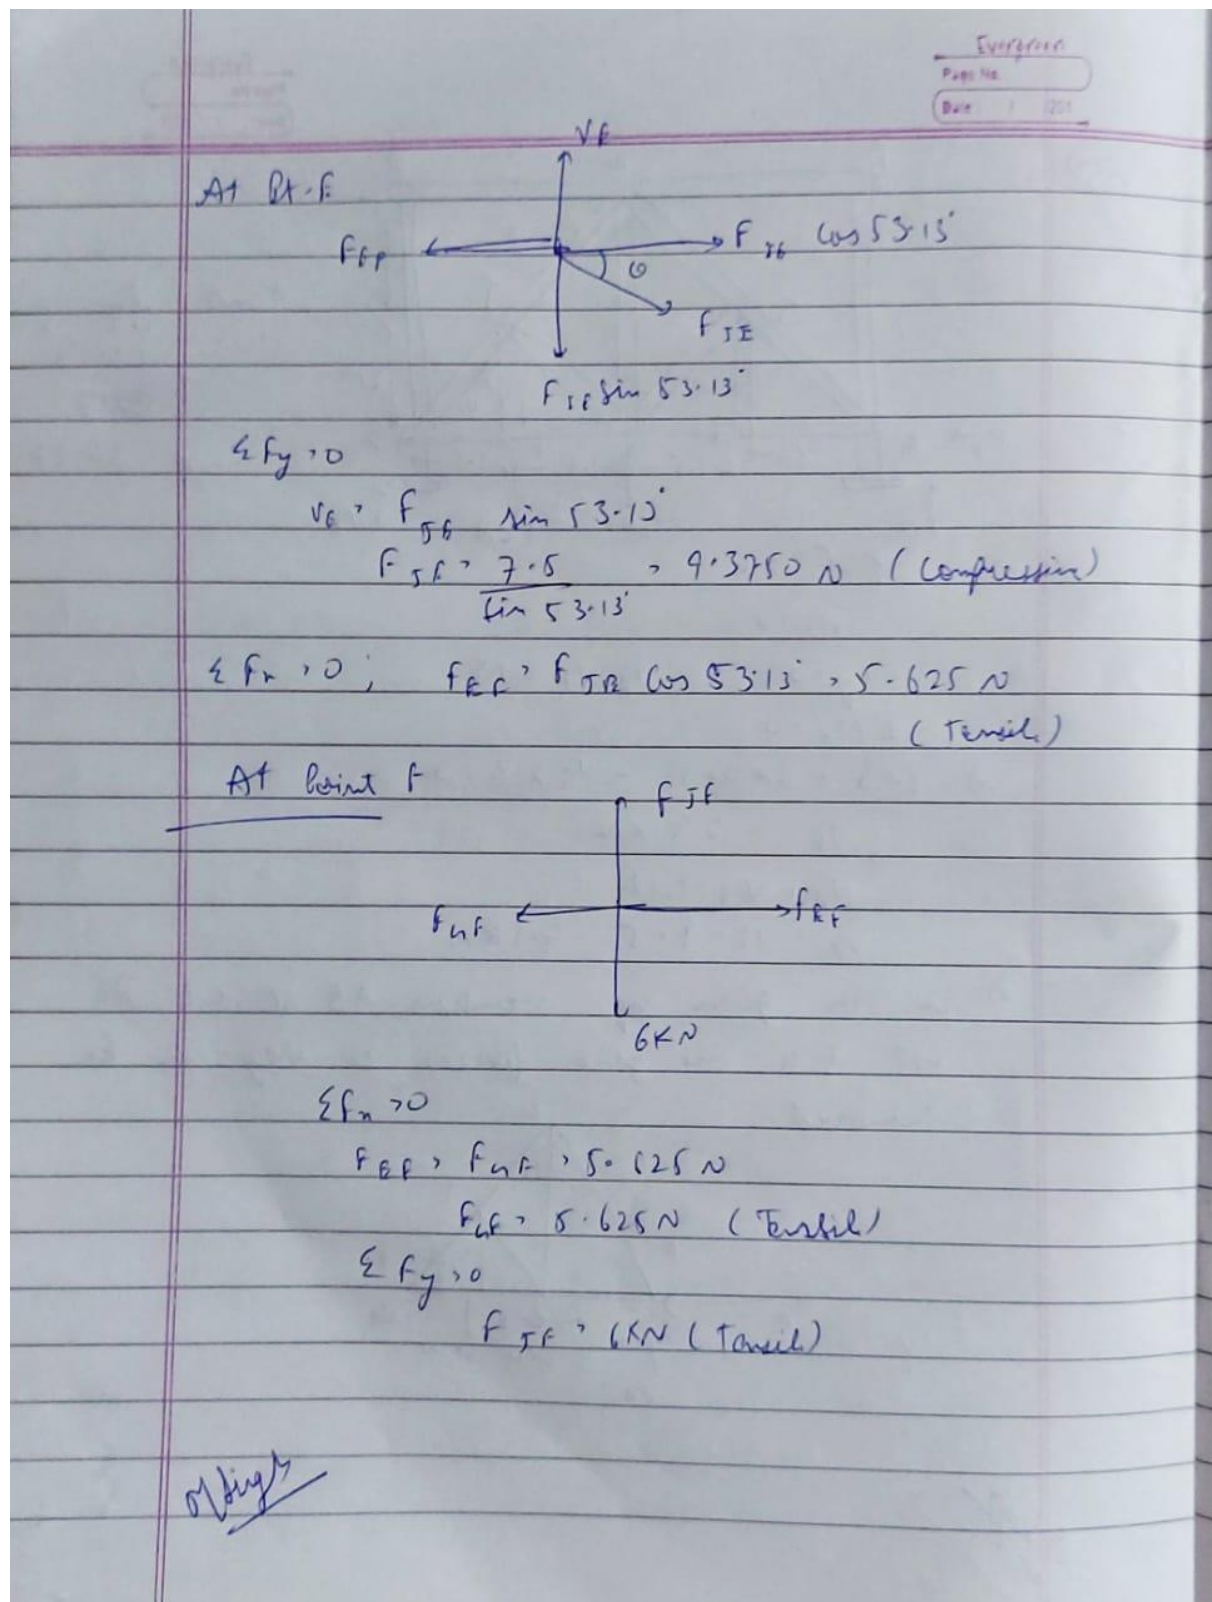 Evergreen
Page No.
Date / /201
V E
At Pt. E
F EF
F JE Cos 53.13°
θ
F JE
F JE Sin 53.13°
Σ Fy = 0
VE = F JE sin 53.13°
F JE = 7.5 / Sin 53.13° = 9.3750 N (Compressive)
Σ Fx = 0 ; F EF = F JE Cos 53.13° = 5.625 N
(Tensile)
At Point F
F JF
F GF
F EF
6KN
Σ Fx = 0
F EF = F GF = 5.625 N
F GF = 5.625 N (Tensile)
Σ Fy = 0
F JF = 6KN (Tensile)